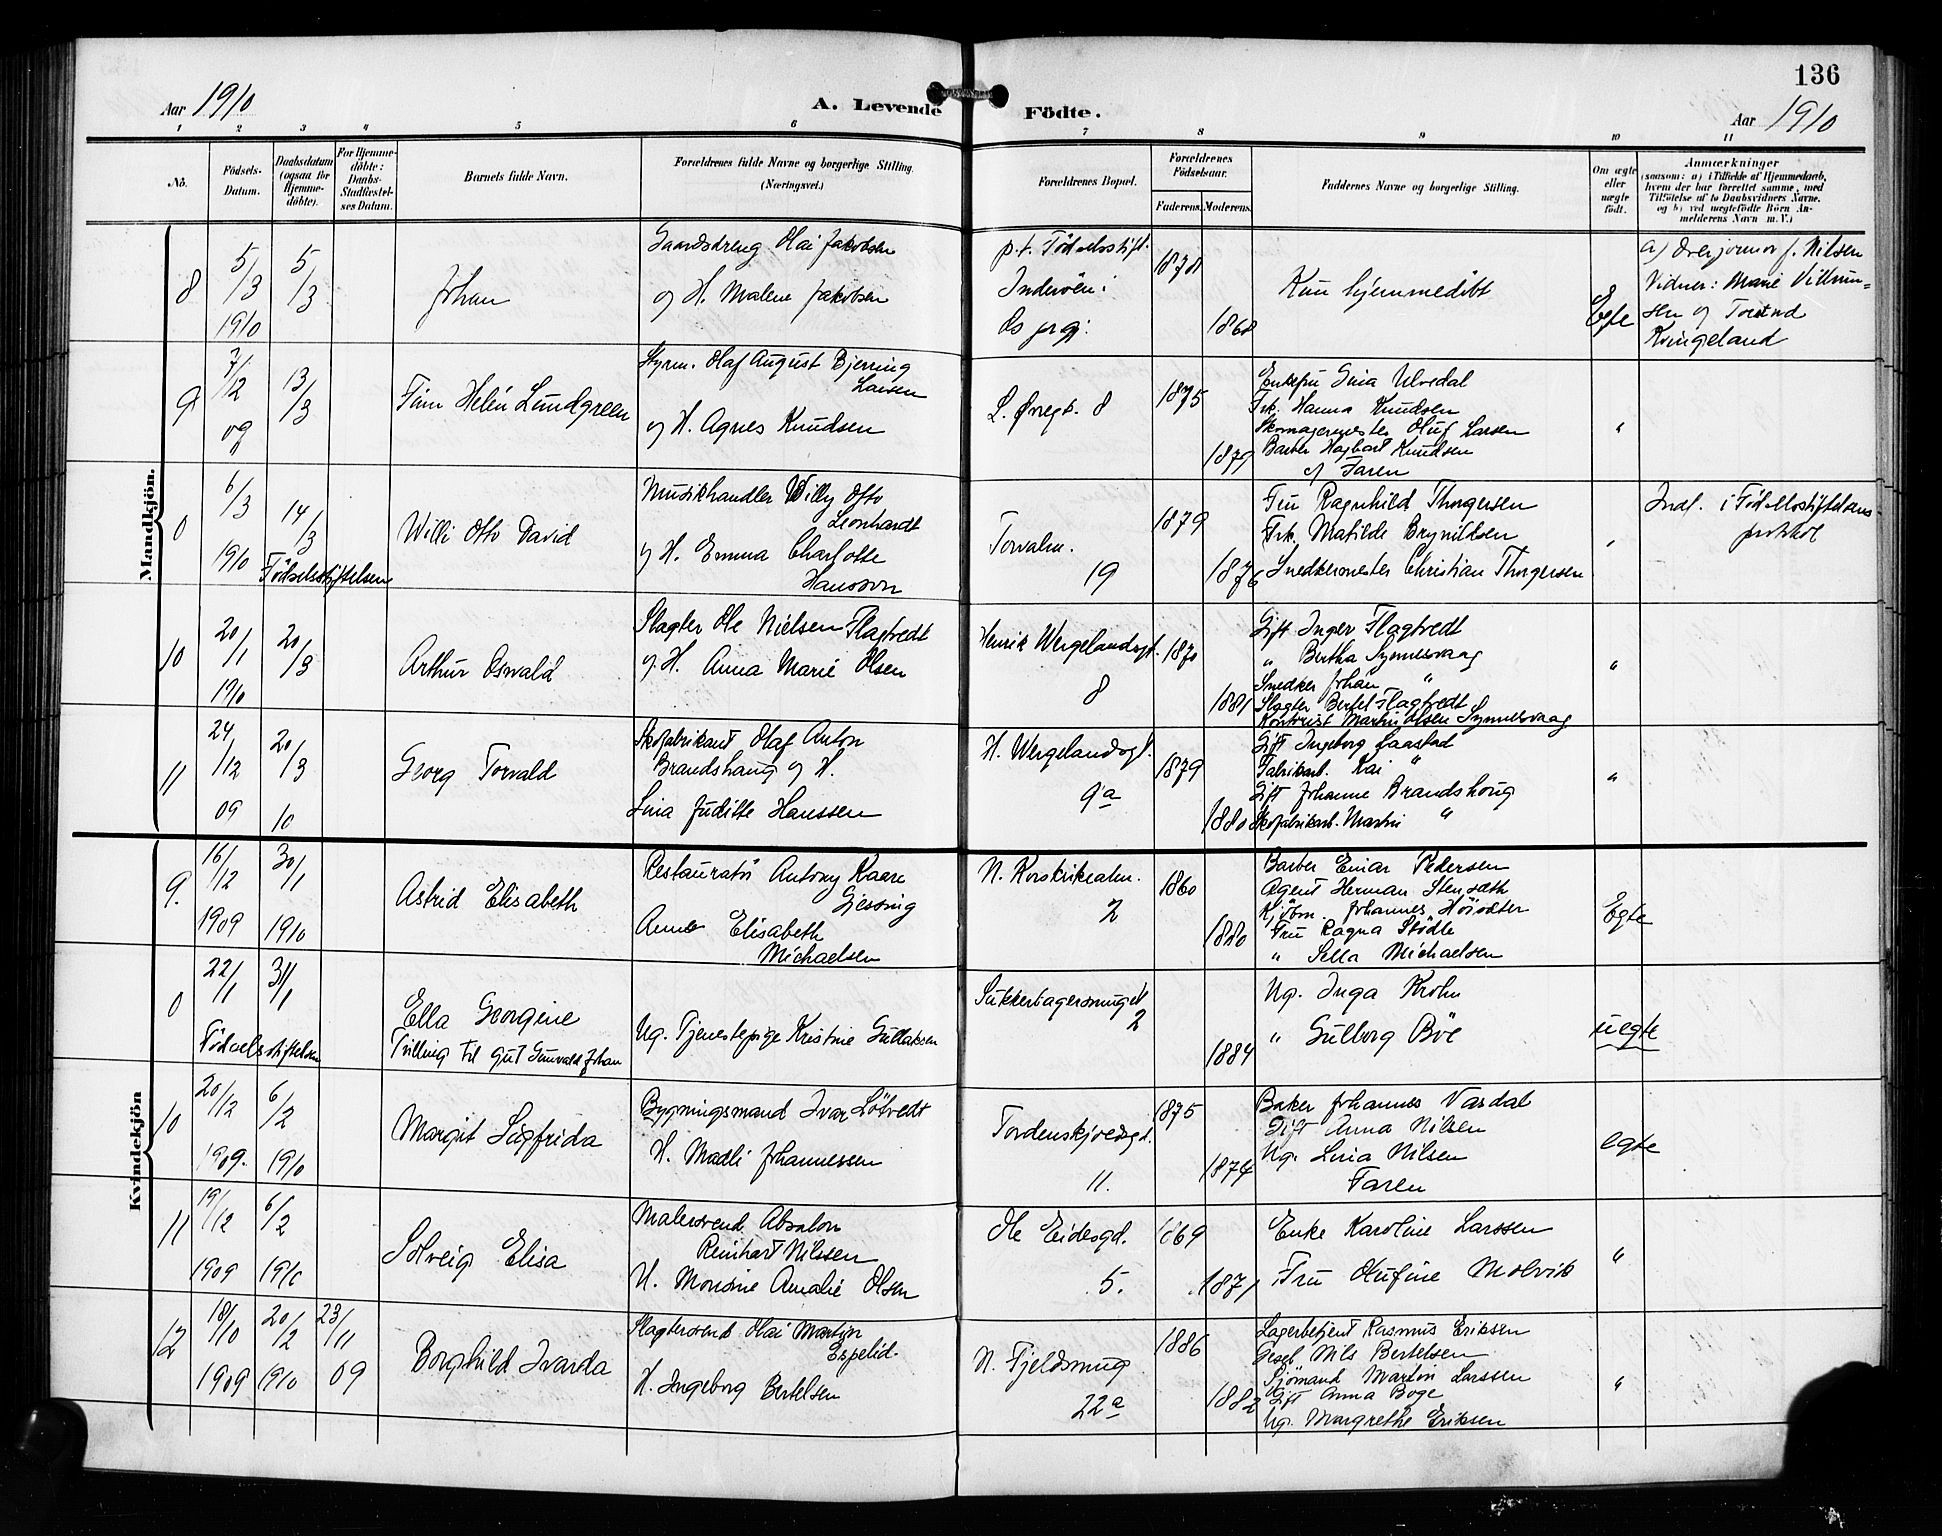 136
Aar 1910
A. Levende Födte.
Aar 1910
1 2 3 4 5 6 7 8 9 10 11
No.
Födsels-Datum.
Daabsdatum (ogsaa for Hjemme-döbte).
For Hjemme-döbte: Daabs-Stadfæstel-ses Datum.
Barnets fulde Navn.
Forældrenes fulde Navne og borgerlige Stilling. (Næringsvei.)
Forældrenes Bopæl.
Forældrenes Födselsaar.
Faderens. Moderens.
Faddernes Navne og borgerlige Stilling.
Om ægte eller uægte födt.
Anmærkninger
(saasom: a) i Tilfælde af Hjemmedaab, hvem der har forrettet samme, med Tilföielse af to Daabsvidners Navne, og b) ved uægtefödte Börn An-melderens Navn m. V.)
Mandkjön.
8
5/3 1910
5/3
Johan
Gaardsdreng Olai Jakobsen
og H. Malene Jakobsen
p.t. Födselsstift.
Inderöen i
Os prgj.
1878
1868
Kun hjemmedöbt
Egte
a) Overjormor J. Nilsen
Vidner: Marie
Kvingeland
9
7/12 09
13/3
Finn Helén Lundgreen
Styrm. Olaf August Bjerring
Larsen
og H. Agnes Knudsen
L. Øvregt. 8
1875
1879
Enkefru Sina Ulvedal
Frk. Hanna Knudsen
Skomagermester Oluf Larsen
Barber Hagbart Knudsen
og Faren
"
0
6/3 1910
14/3
Födselsstiftelsen
Willi Otto David
Musikhandler Willy Otto
Leonhardt
og H. Emma Charlotte
Hansson
Torvalm.
19
1879
1876
Fru Ragnhild Thorgersen
Frk. Matilde Brynildsen
Snedkermester Christian Thorgersen
"
Indf. i Födselsstiftelsens
protokol
10
20/1 1910
20/3
Arthur Oswald
Slagter Ole Nielsen Flagtvedt
og H. Anna Marie Olsen
Henrik Wergelandsgt.
8
1870
1881
Gift Inger Flagtvedt
" Bertha Synnesvaag
Snedker Johan "
Slagter Bertel Flagtvedt
Kontorist Martin Olsen Synnesvaag
"
11
24/12 09
20/3 10
Georg Torvald
Skofabrikant Olaf Anton
Brandshaug og H.
Lina Juditte Hanssen
H. Wergelandsgt.
9a
1879
1880
Gift Ingeborg Saastad
Fabrikarb. Kai "
Gift Johanne Brandshoug
Skofabrikarb. Martin "
"
Kvindekjön
9.
16/12 1909
30/1 1910
Astrid Elisabeth
Restauratör Antony Kaare
Gjessing
Anna Elisabeth
Michaelsen
N. Korskirkealm.
2
1860
1880
Barber Einar Pedersen
Agent Herman Stensæth
Kjöbm. Johannes Höisæter
Fru Ragna Stödle
" Sella Michaelsen
Egte
0
22/1
31/1
Födselsstiftelsen
Ella Georgine
Tvilling til gut Gunvald Johan
Ug. Tjenestepige Kristine Gullaksen
Sukkerhagersmuget
2
1884
Ug. Inga Krohn
" Gulborg Böe
uegte
10
20/12 1909.
6/2 1910
Margit Sigfrida
Bygningsmand Ivar Lötvedt
H. Madli Johannessen
Tordenskjoldsgt.
11.
1875
1874
Baker Johannes Vardal
Gift Anna Nilsen
Ug. Lina Nilsen
Faren
egte
11
19/12 1909
6/2 1910
Solveig Elisa
Malersvend Absalon
Reinhart Nilssen
H. Monsine Amalie Olsen
Ole Eidesgd.
5.
1869
1871
Enke Karoline Larssen
Fru Olufine Molvik
"
12
18/10 1909
20/2 1910
23/11 09
Borghild Ivarda
Slagtersvend Olai Martin
Espelid.
H. Ingeborg Bertelsen
N. Fjeldsmug
22a
1886
1882
Lagerbetjent Rasmus Eriksen
Gesel Nils Bertelsen
Sjömand Martin Larssen
Gift Anna Boge
Ug. Margrethe Eriksen
"